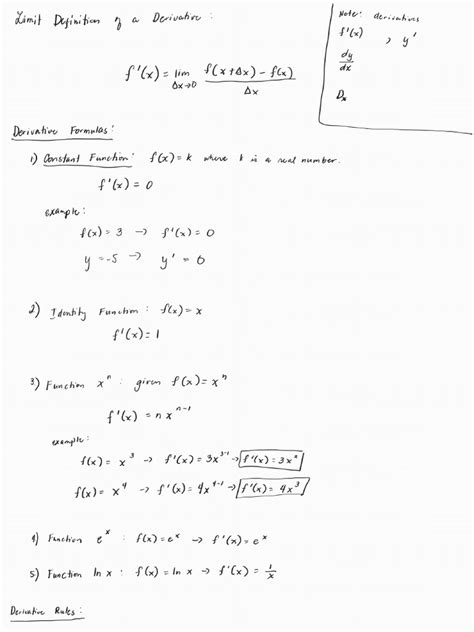 Limit Definition of a Derivative:
Note: derivatives
f'(x) , y'
dy/dx
Dx
f'(x) = lim Δx→0 f(x+Δx) - f(x) / Δx
Derivative Formulas:
1) Constant Function: f(x) = k where k is a real number.
f'(x) = 0
example:
f(x) = 3 → f'(x) = 0
y = -5 → y' = 0
2) Identity Function: f(x) = x
f'(x) = 1
3) Function xⁿ: given f(x) = xⁿ
f'(x) = n xⁿ⁻¹
example:
f(x) = x³ → f'(x) = 3x³⁻¹ → f'(x) = 3x²
f(x) = x⁴ → f'(x) = 4x⁴⁻¹ → f'(x) = 4x³
4) Function eˣ: f(x) = eˣ → f'(x) = eˣ
5) Function ln x: f(x) = ln x → f'(x) = 1/x
Derivative Rules: